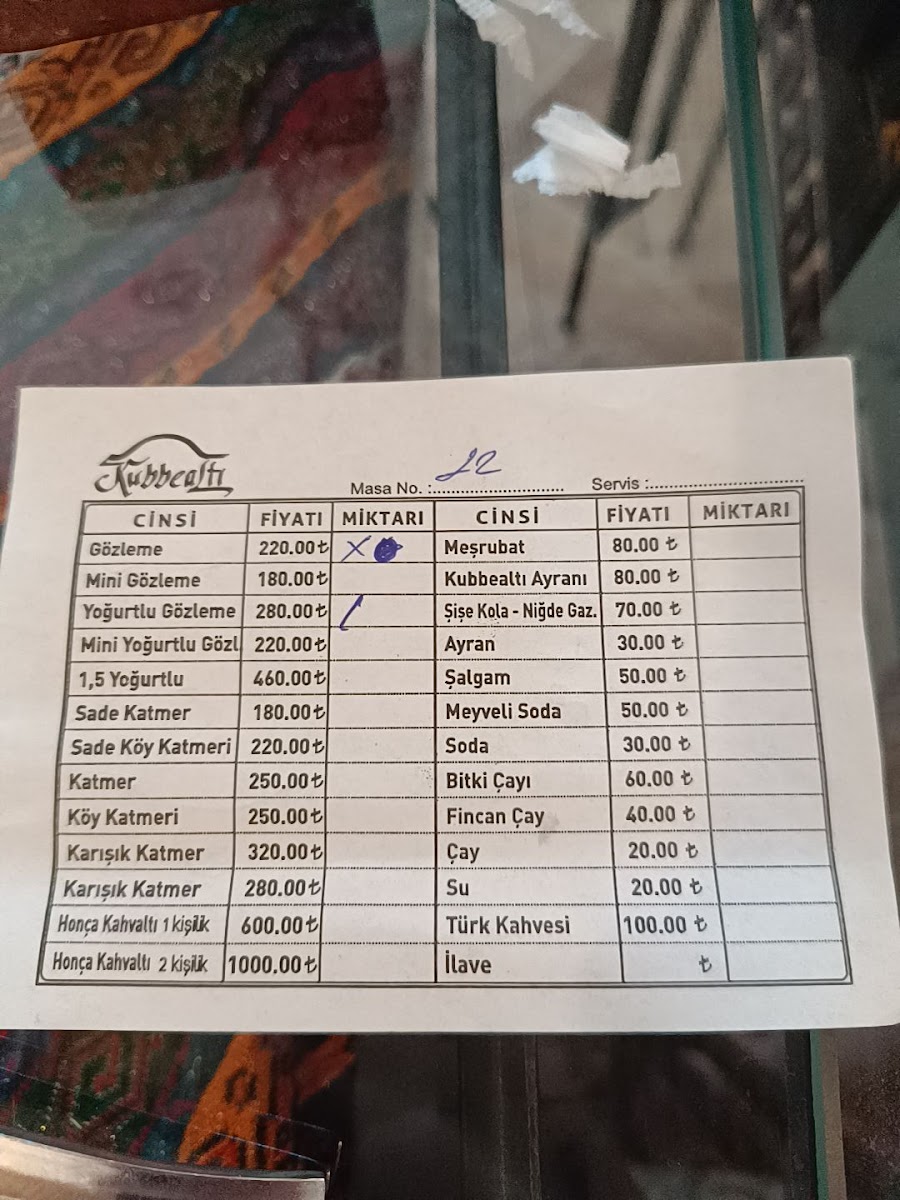 Kubbealtı
Masa No. :............................ 22 Servis :................................
CİNSİ FİYATI MİKTARI CİNSİ FİYATI MİKTARI
Gözleme 220.00₺ X Meşrubat 80.00 ₺
Mini Gözleme 180.00₺ Kubbealtı Ayranı 80.00 ₺
Yoğurtlu Gözleme 280.00₺ / Şişe Kola - Niğde Gaz. 70.00 ₺
Mini Yoğurtlu Gözl 220.00₺ Ayran 30.00 ₺
1,5 Yoğurtlu 460.00₺ Şalgam 50.00 ₺
Sade Katmer 180.00₺ Meyveli Soda 50.00 ₺
Sade Köy Katmeri 220.00₺ Soda 30.00 ₺
Katmer 250.00₺ Bitki Çayı 60.00 ₺
Köy Katmeri 250.00₺ Fincan Çay 40.00 ₺
Karışık Katmer 320.00₺ Çay 20.00 ₺
Karışık Katmer 280.00₺ Su 20.00 ₺
Honça Kahvaltı 1 kişilik 600.00₺ Türk Kahvesi 100.00 ₺
Honça Kahvaltı 2 kişilik 1000.00₺ İlave ₺